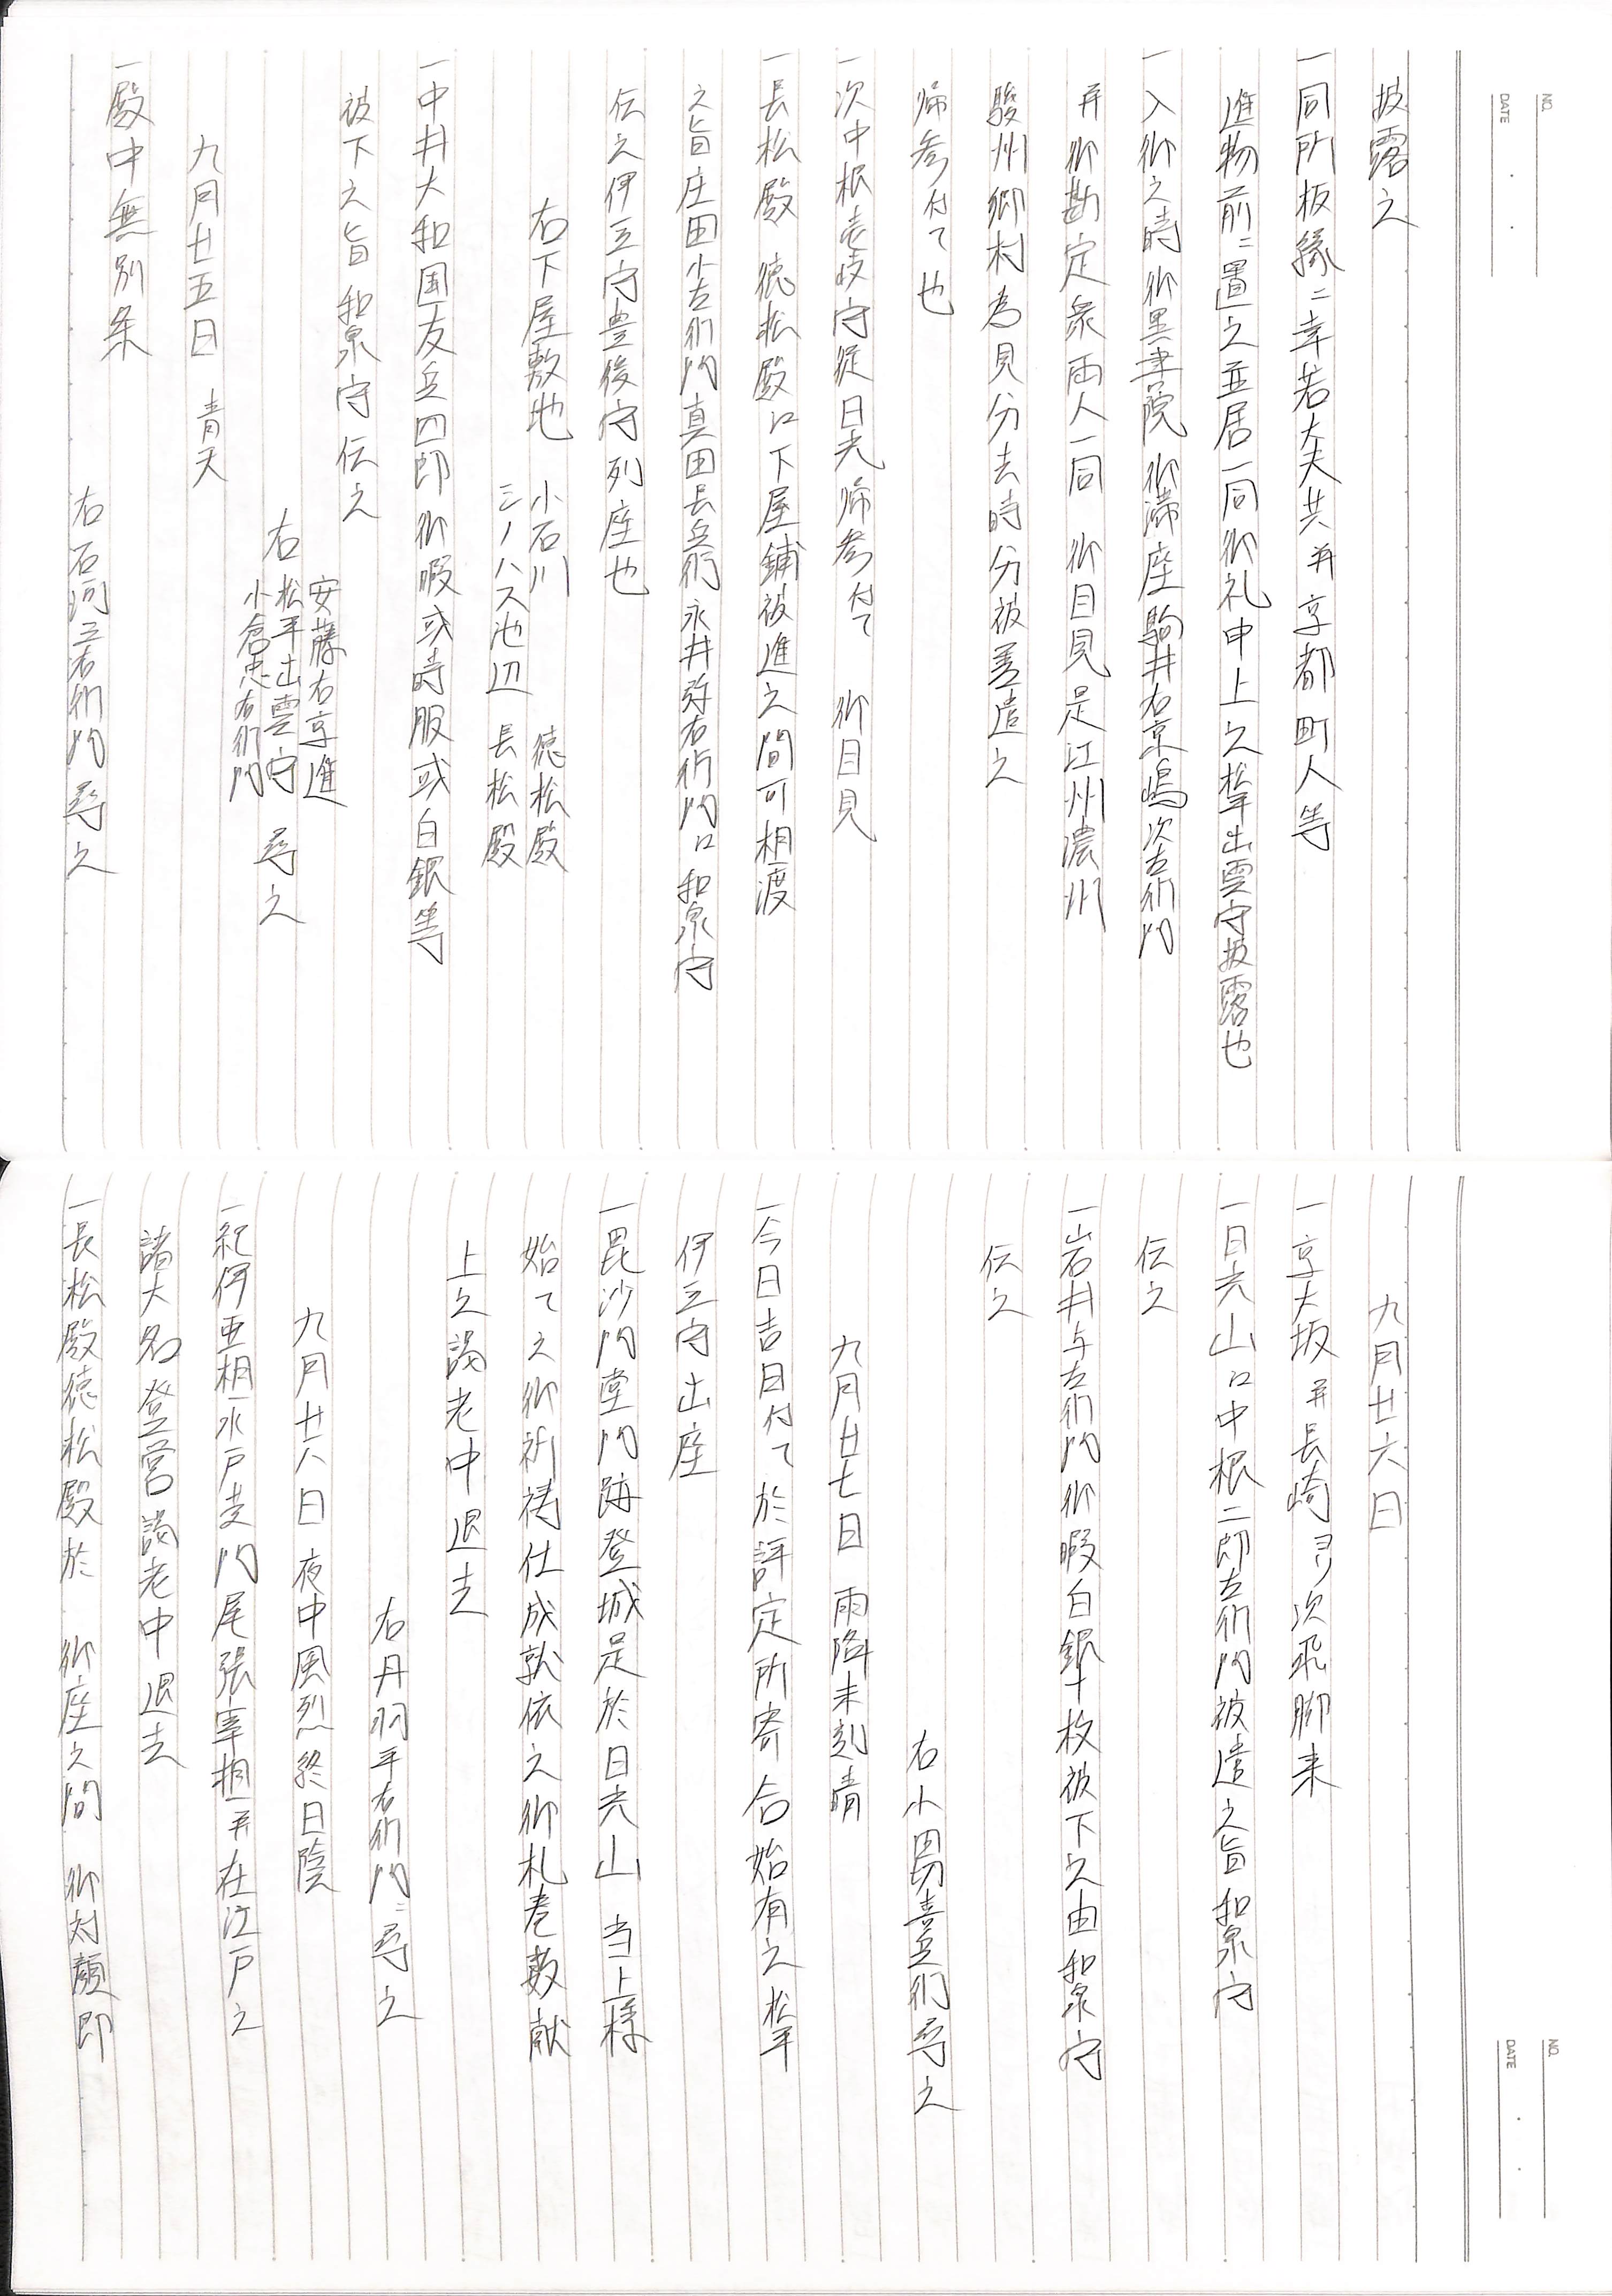 披露之
一同所板縁ニ幸若大夫共并京都町人等
進物前ニ置之並居一同御礼申上之松平出雲守披露也
一入御之時御黒書院御滞座駒井右京嶋次左衛門
并御勘定衆両人一同 御目見是江州濃州
駿州郷村為見分去時分被差遣之
帰参付て也
一次中根壱岐守従日光帰参付て 御目見
一長松殿 徳松殿江下屋鋪被進之間可相渡
之旨庄田小左衛門真田長兵衛永井弥右衛門江和泉守
伝之伊豆守豊後守列座也
右下屋敷地 小石川 徳松殿
三ノハス池辺 長松殿
一中井大和国友兵四郎御暇或時服或白銀等
被下之旨和泉守伝之
安藤右京進
右松平出雲守 尋之
小倉忠右衛門
九月廿五日 青天
一殿中無別条
右石河三右衛門尋之
九月廿六日
一京大坂并長崎ヨリ次飛脚来
一日光山江中根二郎左衛門被遣之旨和泉守
伝之
一岩井与左衛門御暇白銀十枚被下之由和泉守
伝之
右小田切喜兵衛尋之
九月廿七日 雨降未刻晴
一今日吉日付て於評定所寄合始有之松平
伊豆守出座
一毘沙門堂門跡登城是於日光山 当上様
始て之御祈祷仕成就依之御札巻数献
上之謁老中退去
右丹羽平右衛門ニ尋之
九月廿八日 夜中風烈終日陰
一紀伊亜相水戸黄門尾張宰相并在江戸之
諸大名登営謁老中退去
一長松殿徳松殿於 御座之間 御対顔即
NO.
DATE ・ ・
NO.
DATE ・ ・